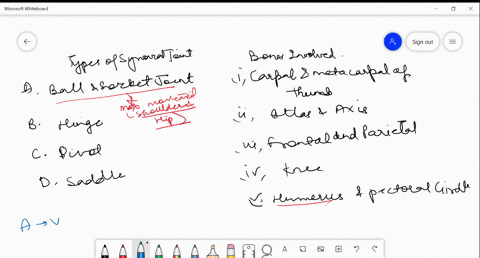 Microsoft Whiteboard
Sign out
Types of Synovial Joint
A. Ball & Socket Joint
max movement
shoulder
Hip
B. Hinge
C. Pivot
D. Saddle
A → V
Bones Involved.
i, Carpal & metacarpal of
thumb
ii, Atlas & Axis
iii, Frontal and Parietal
iv, Knee
v. Humerus & pectoral Girdle